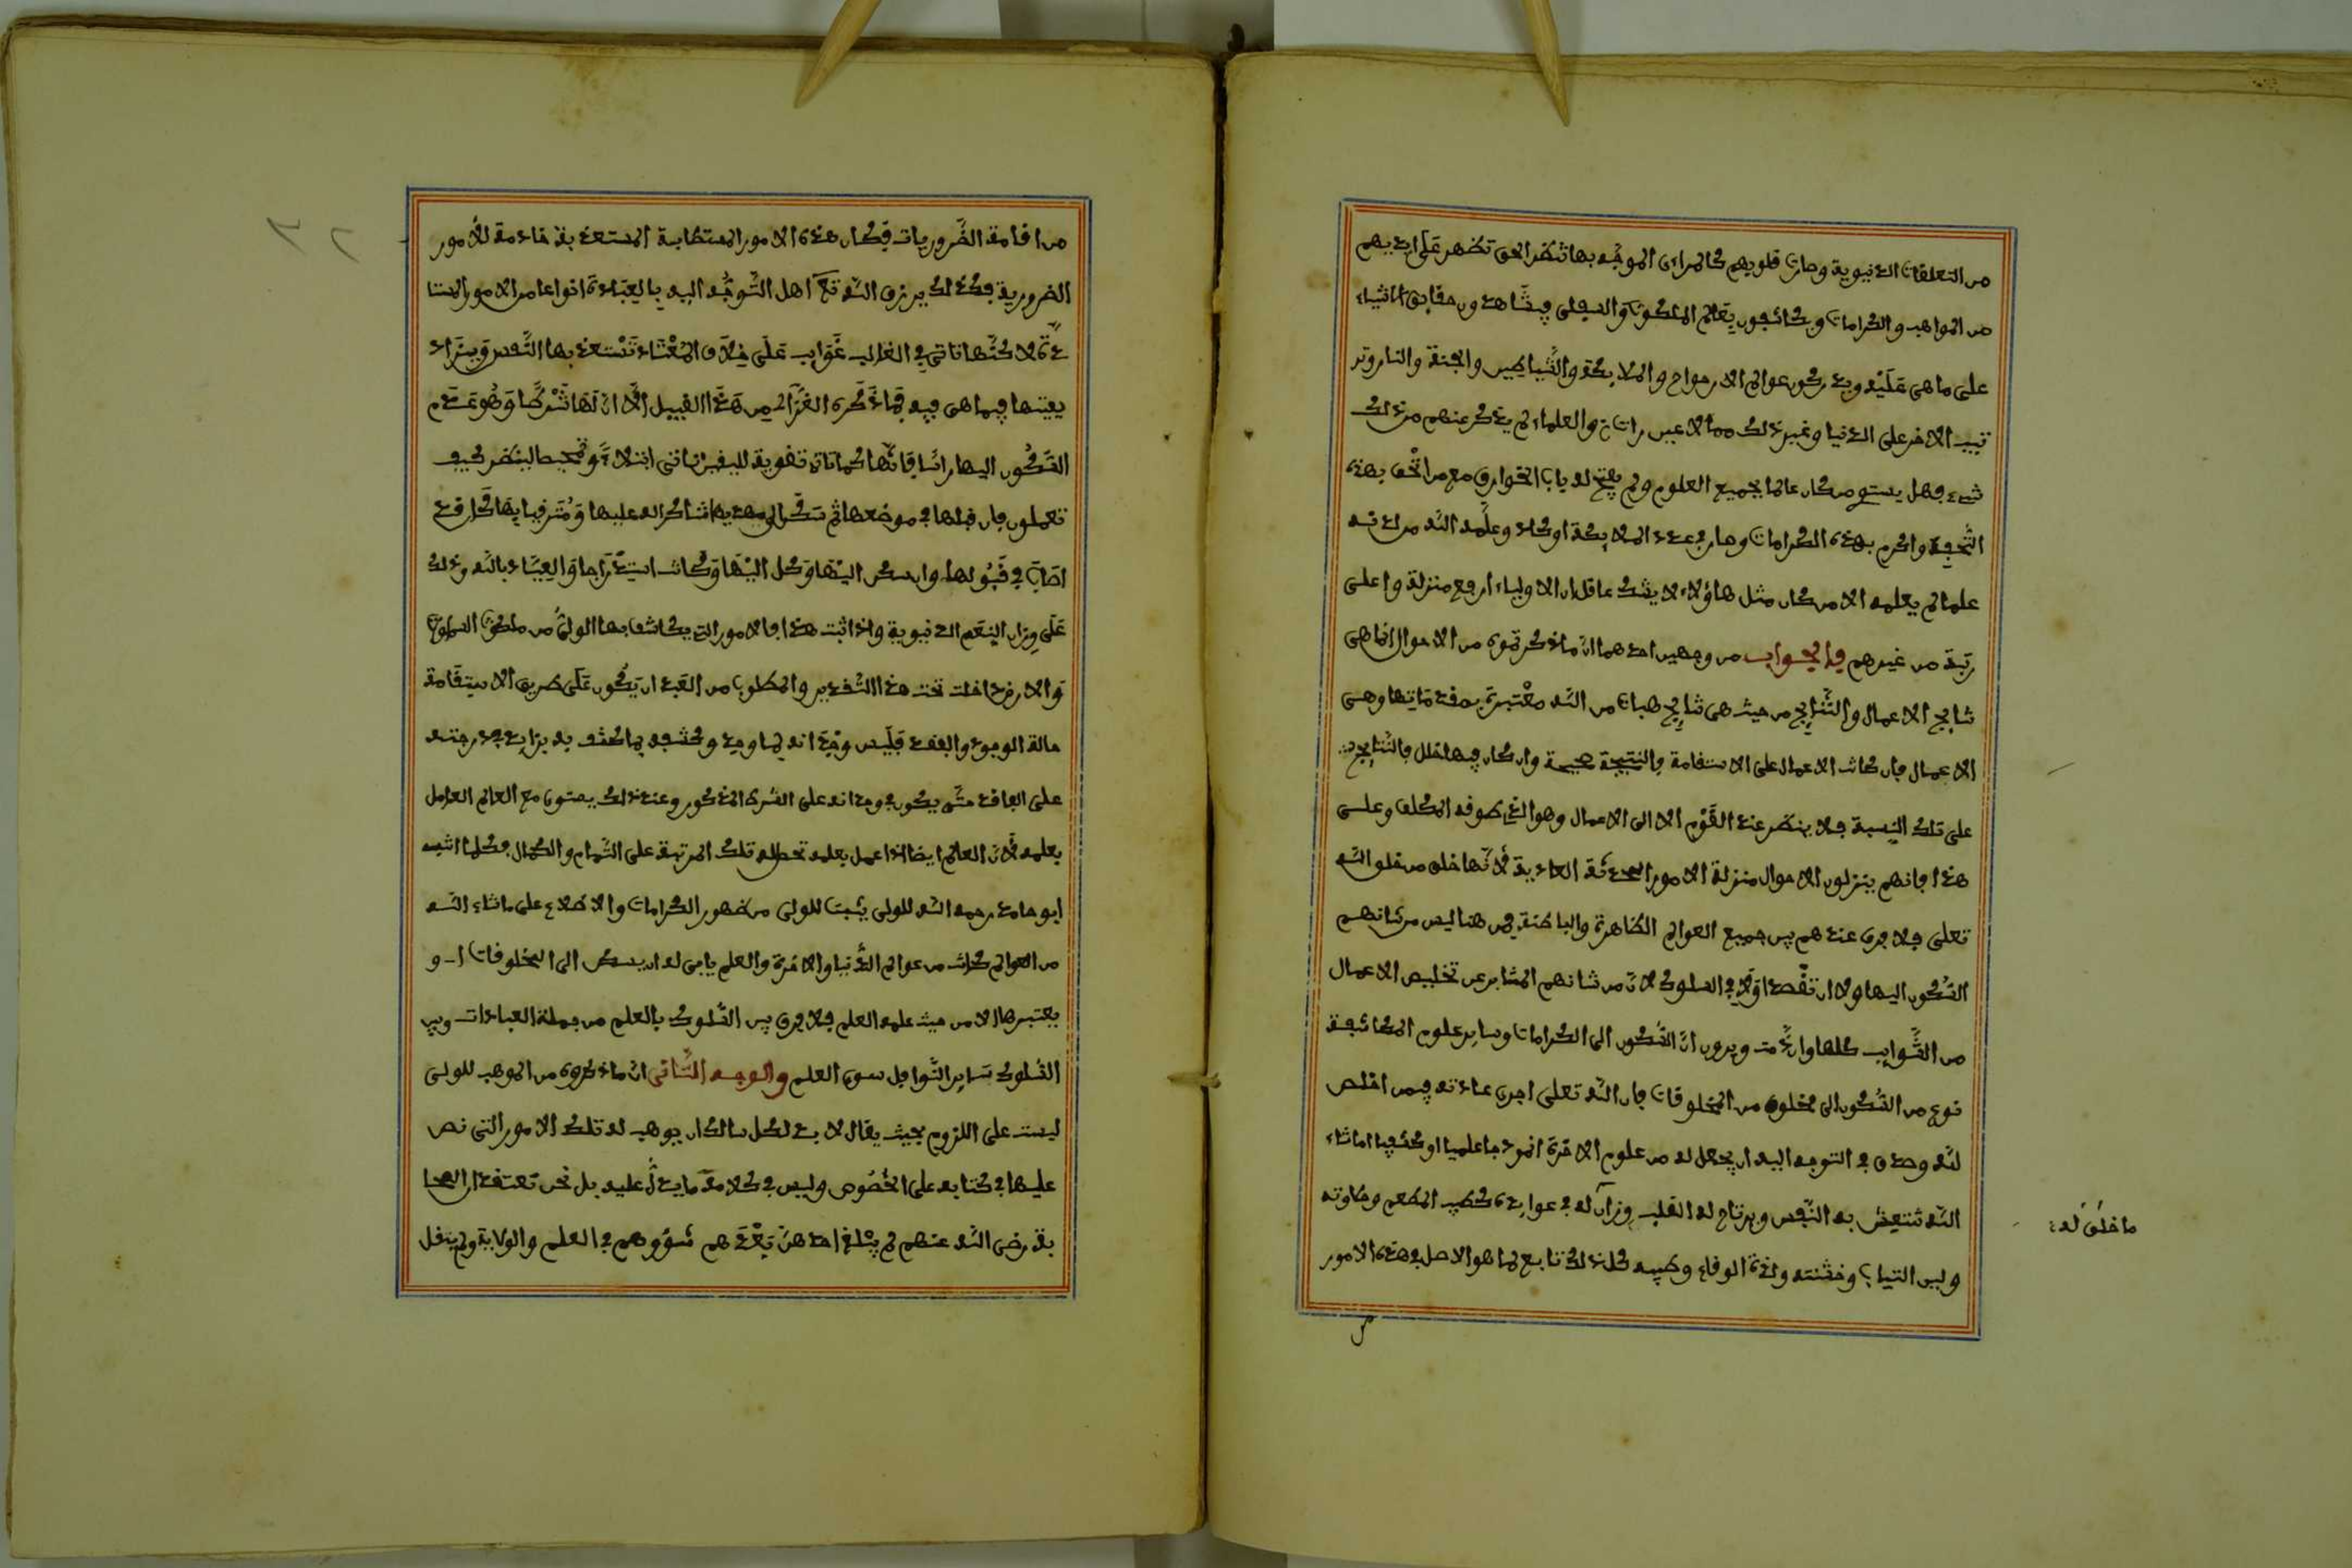 من التعلقات الدنيوية وصارت قلوبهم كالمراءى الموجه بها شطر الحق تظهر على ايديهم
من المواهب والكرامات ويكاشفون بعالم الملكوت والسفلى فيشاهدون حقايق الاشياء
على ما هى عليه ويدركون عوالم الارواح والملايكة والشياطين والجنة والنار وتر
تيب الاخر على الدنيا وغير ذلك مما لا عين رات والعلماء لم يذكر عنهم من ذلك
شىء فهل يستوى من كان عالما بجميع العلوم ولم يفتح له باب الخوارق مع من اتحف بهذه
التحفة واكرم بهذه الكرامات وصار فى عدد الملايكة او كاد وعلمه الله من لدنه
علما لم يعلمه الا من كان مثل هاؤلاء لا يشك عاقل ان الاولياء ارفع منزلة واعلى
رتبة من غيرهم فالجواب من وجهين احدهما ان ما ذكرتموه من الاحوال انما هى
نتايج الاعمال والنتايج من حيث هى نتايج هبات من الله معتبرة بمقدماتها وهى
الاعمال فان كانت الاعمال على الاستقامة فالنتيجة صحيحة وان كان فيها خلل فالنتايج
على تلك النسبة فلا ينظر عند القوم الا الى الاعمال وهو الذى طوقه المكلف وعلى
هذا فانهم ينزلون الاحوال منزلة الامور المحدثة العادية لانها خلق من خلق الله
تعلى فلا فرق عندهم بين جميع العوالم الظاهرة والباطنة فمن هنا ليس من شانهم
السكون اليها ولا ان تقصد اولا فى السلوك لان من شانهم المثابرعن تخليص الاعمال
من الشوايب كلها وان دقت ويرون ان السكون الى الكرامات وساير علوم المكاشفة
نوع من السكون الى مخلوق من المخلوقات فان الله تعلى اجرى عادته فيمن اخلص
لله وصدق فى التوجه اليه ان يجعل له من علوم الاخرة انموذجا علميا او كشفيا اما شاء
الله تنتعش به النفس ويرتاح له القلب وزان له فى عوايده كطيب المطعم وحلاوته
ولين الثياب وخشنته ولذة الوقاع وطيبه كل ذلك تابع لما هو الاصل فى هذه الامور
ما خلق له
من اقامة الضروريات فكان هذه الامور المستطابة المستعذبة خادمة للامور
الضرورية فكذلك يرزق الله تعلى اهل التوجه اليه بالعبادة انواعا من الامور المستا
عدة لاكنها تاتى فى الغالب غوايب على خلاف المعتاد تستعذ بها النفس ويزاد
يعينها فيما هى فيه فما ذكره الغزالى من هذا القبيل الا ان لها شركا وهو عدم
السكون اليها راسا فانها كما تاتى تقوية لليقين تاتى ابتلاء وتمحيصا لينظر كيف
تعملون فان قبلها فى موضعها ثم شكر الى مهديها شاكرا له عليها ومترقيا بها فقد
اصاب فى قبولها وان سكن اليها وكل اليها وكانت استدراجا والعياذ بالله وذلك
على وزان النعم الدنيوية واذا ثبت هذا فالامور التى يكاشف بها الولى من ملكوت السموات
والارض داخلت تحت هذا التقدير والمطلوب من العبد ان يكون على طريق الاستقامة
حالة الوجود والفقد فليس وجدانه لما وجد وكشفه بما كشف به بزايد فى درجته
على الفاقد حتى يكون فى وجدانه على الشرط المذكور وعند ذلك يستوى مع العالم العامل
بعلمه لان العالم ايضا اذا عمل بعلمه تحصل له تلك المرتبة على التمام والكمال فكلما اثبته
ابو حامد رحمه الله للولى يثبت للولى من ظهور الكرامات والاطلاع على ما شاء الله
من العوالم كانت من عوالم الدنيا والاخرة والعلم يابى له ان يسكن الى المخلوقات او
يعتبرها الا من حيث علمه العلم فلا فرق بين السلوك بالعلم من جملة العبادات وبين
السلوك بساير النوافل سوى العلم والوجه الثانى ان ما ذكروه من الموهب للولى
ليست على اللزوم بحيث يقال لا بد لكل سالك ان يوهب له تلك الامور التى نص
عليها فى كتابه على الخصوص وليس فى كلامه ما يدل عليه بل نحن نعتقد ان الصحا
بة رضى الله عنهم لم يبلغ احد من بعدهم شؤوهم فى العلم والولاية ولم ينقل